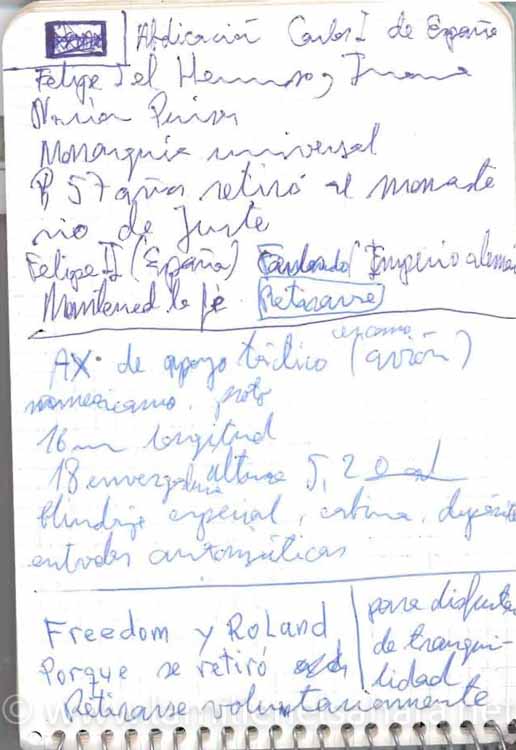 Abdicación Carlos I de España
Felipe I el Hermoso y Juana
María
Monarquía universal
57 años retiró al monaste
rio de Juste
Felipe II (España) Fernando Imperio alemán
Mantened la fe Retirarse
cercano
AX. de apoyo táctico (avión)
proto
16 m longitud
18 envergadura altura 5,20
blindaje especial, cabina, depósito
entradas automáticas
Freedom y Roland
Porque se retiró
Retirarse voluntariamente
para disfrutar
de tranqui-
lidad